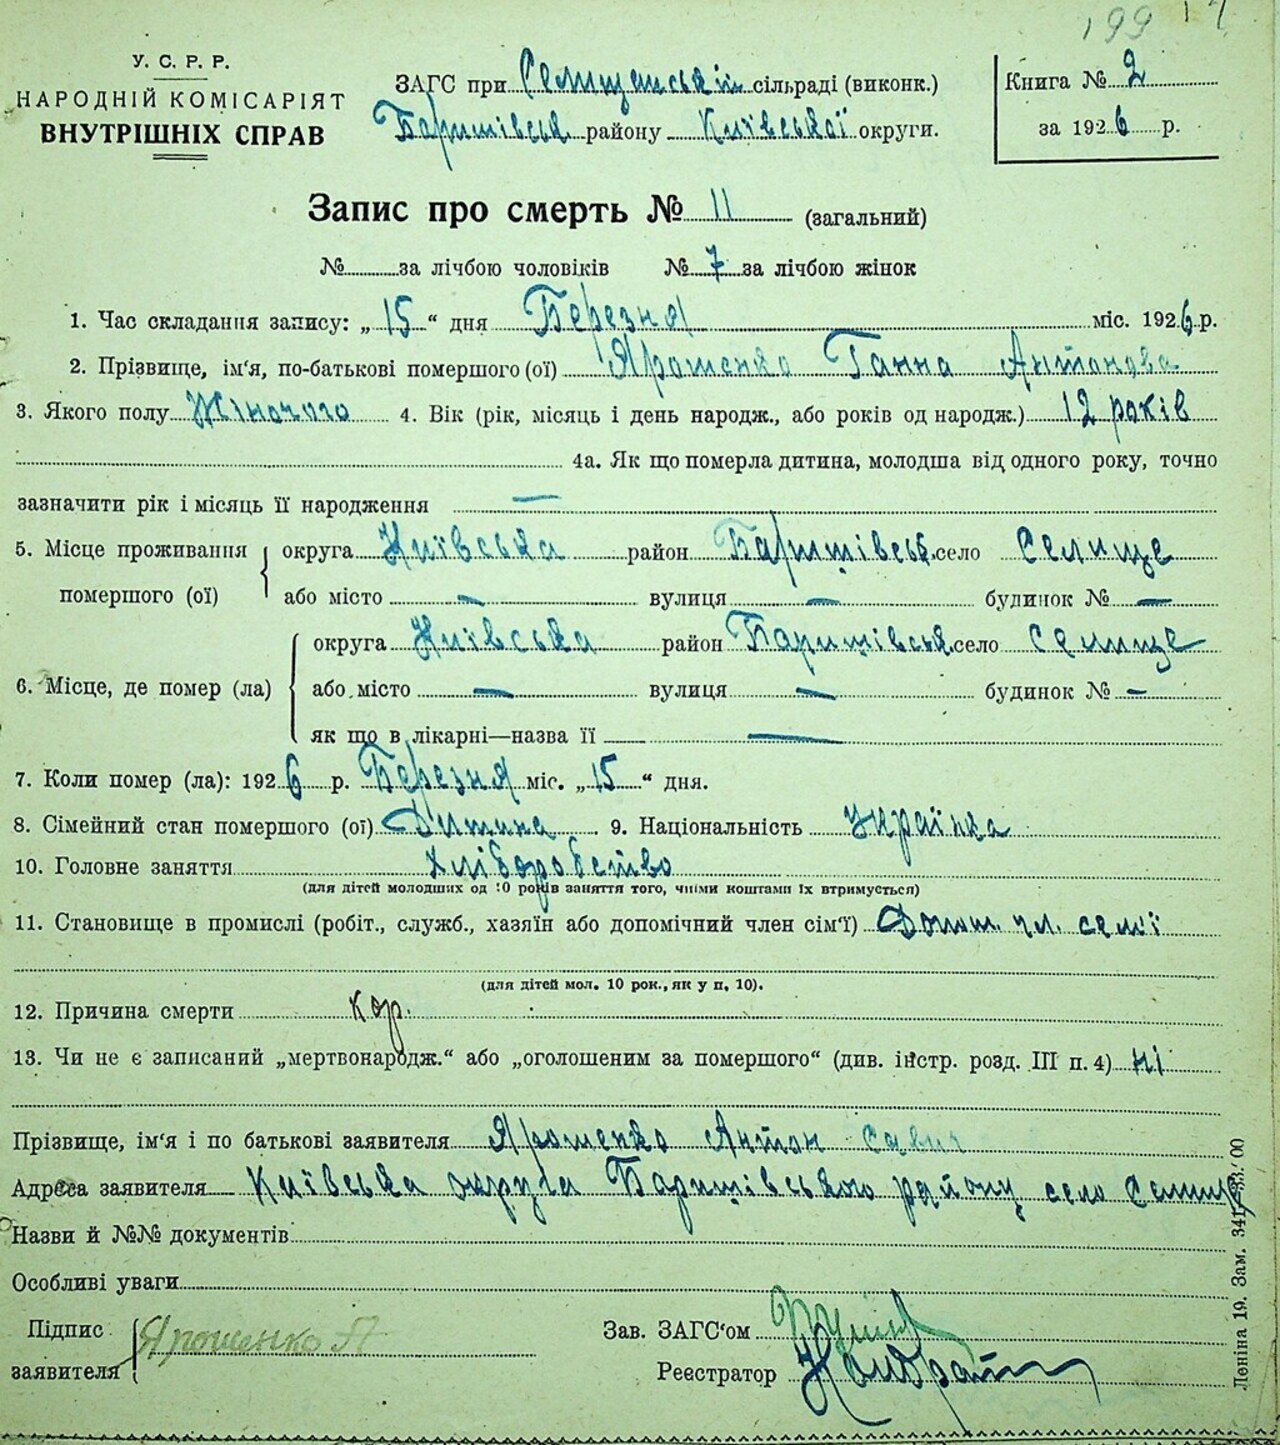 199 17
У. С. Р. Р.
НАРОДНІЙ КОМІСАРІЯТ
ВНУТРІШНІХ СПРАВ
ЗАГС при Селищанській сільраді (виконк.)
Баришівськ. району Київської округи.
Книга № 2
за 1926 р.
Запис про смерть № 11 (загальний)
№ за лічбою чоловіків № 7 за лічбою жінок
1. Час складання запису: „15“ дня Березня міс. 1926 р.
2. Прізвище, ім'я, по-батькові помершого (ої) Ярошенко Ганна Антонова
3. Якого полу Жіночого 4. Вік (рік, місяць і день народж., або років од народж.) 12 років
4а. Як що померла дитина, молодша від одного року, точно
зазначити рік і місяць її народження —
5. Місце проживання помершого (ої) округа Київська район Баришівськ. село Селище
або місто — вулиця — будинок № —
6. Місце, де помер (ла) округа Київська район Баришівськ. село Селище
або місто — вулиця — будинок № —
як що в лікарні—назва її —
7. Коли помер (ла): 1926 р. Березня міс. „15“ дня.
8. Сімейний стан помершого (ої) Дитина 9. Національність Українка
10. Головне заняття Хліборобство
(для дітей молодших од 10 років заняття того, чиїми коштами їх втримується)
11. Становище в промислі (робіт., служб., хазяїн або допомічний член сім'ї) Допом. чл. семї
(для дітей мол. 10 рок., як у п. 10).
12. Причина смерти кор.
13. Чи не є записаний „мертвонародж.“ або „оголошеним за помершого“ (див. інстр. розд. III п. 4) ні
Прізвище, ім'я і по батькові заявителя Ярошенко Антон Савич
Адреса заявителя Київська округа Баришівського району село Селище
Назви й №№ документів
Особливі уваги
Підпис заявителя Ярошенко А
Зав. ЗАГС'ом
Реєстратор
Леніна 19. Зам. 341